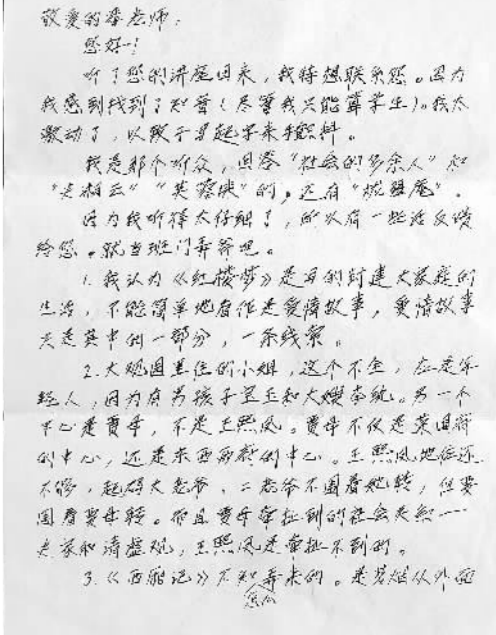 敬爱的李老师：
您好！
听了您的讲座回来，我特想联系您。因为
我感到找到了知音（尽管我只能算学生）。我太
激动了，以致于写起字来手颤抖。
我是那个听众，回答“社会的多余人”和
“史湘云”“芙蓉”的，还有“”。
因为我听得太仔细了，所以有一些话反馈
给您。就当班门弄斧吧。
1. 我认为《红楼梦》是写的封建大家庭的
生活，不能简单地看作是爱情故事，爱情故事
只是其中的一部分，一条线索。
2. 大观园里住的小姐，这个不全，应是年
轻人，因为有男孩子宝玉和大嫂李纨。另一个
中心是贾母，不是王熙凤。贾母不仅是荣国府
的中心，还是东西两府的中心。王熙凤地位还
不够，起码大老爷、二老爷不围着她转，但要
围着贾母转。而且贾母牵扯到的社会关系——
史家和清虚观，王熙凤是牵扯不到的。
3.《西厢记》不知怎么弄来的。是茗烟从外面